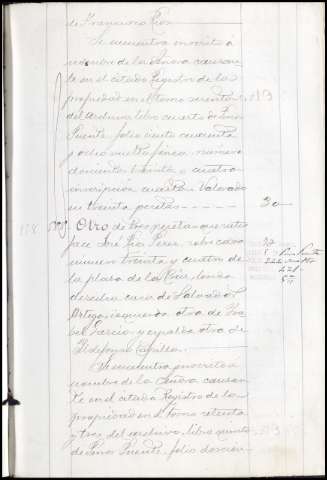 de Francisco Rios
Se encuentra inscrito á
nombre de la Señora causan
te en el citado Registro de la
propiedad en el tomo setenta
del archivo, libro cuarto de Pino
Puente, folio ciento cuarenta
y ocho vuelto, finca número
doscientos treinta y cuatro
inscripción cuarta. Valorado
en treinta pesetas - - - - - 30 -
Otro de tres pesetas que satis
face José Rios Perez, sobre casa
número treinta y cuatro de
la plaza de la Cruz, linda
derecha casa de Salvador
Ortega, izquierda otra de Isa
bel Garcia y espalda otra de
Ildefonso Capilla.
Se encuentra inscrito á
nombre de la Señora causan
te en el citado Registro de la
propiedad en el tomo setenta
y tres del archivo, libro quinto
de Pinos Puente, folio doscien